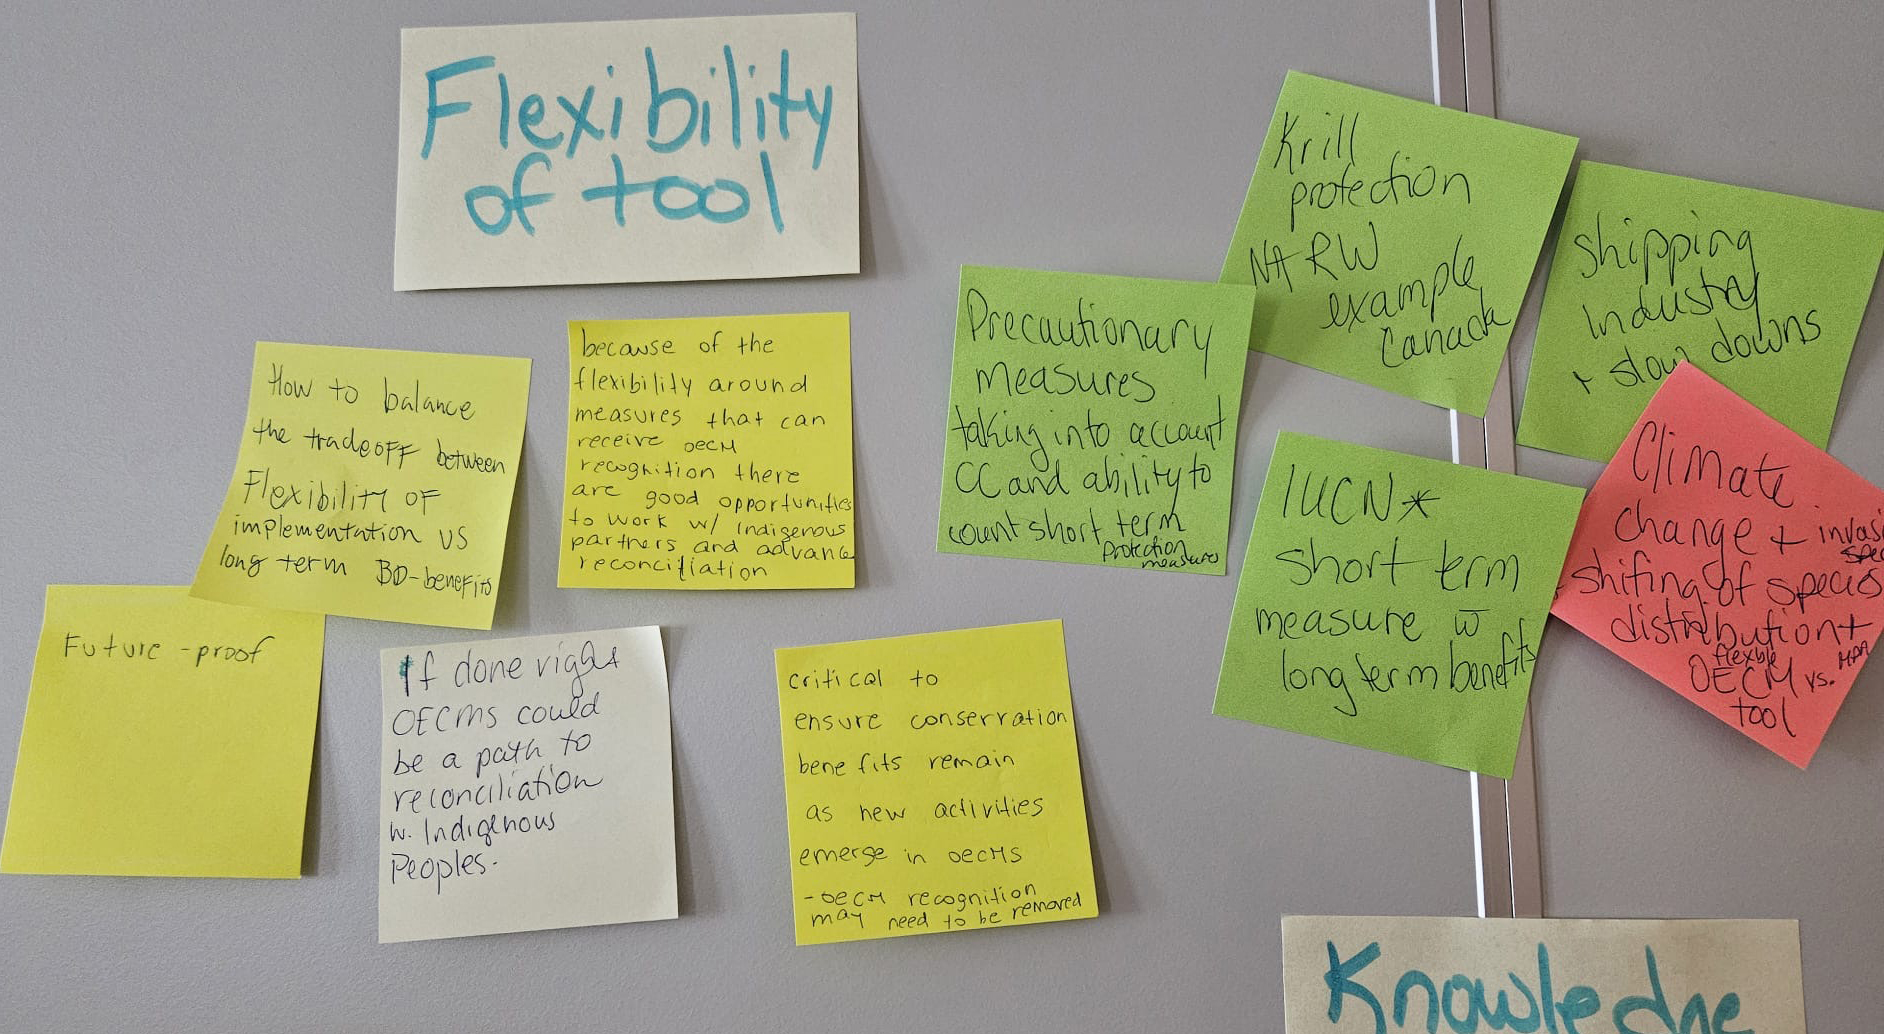 Flexibility
of tool
How to balance
the tradeoff between
Flexibility of
implementation vs
long term BD-benefits
because of the
flexibility around
measures that can
receive OECM
recognition there
are good opportunities
to work w/ Indigenous
partners and advance
reconciliation
Future-proof
If done right
OECMs could
be a path to
reconciliation
w. Indigenous
Peoples.
critical to
ensure conservation
benefits remain
as new activities
emerge in OECMs
- OECM recognition
may need to be removed
Precautionary
measures
taking into account
CC and ability to
count short term
protection
measures
Krill
protection
NARW
example
Canada
Shipping
Industry
+ slow downs
IUCN*
short term
measure w̄
long term benefits
Climate
change + invasi
spec
shifing of species
distribution +
flexble
OECM vs. MPA
tool
Knowledge